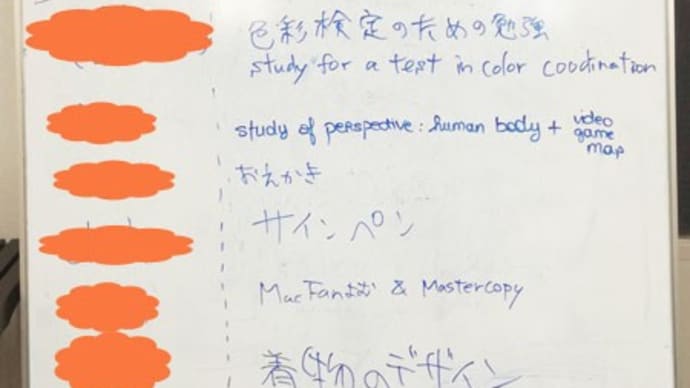 色彩検定のための勉強
study for a test in color coodination
study of perspective: human body + video game map
おえかき
サインペン
MacFanよむ & Mastercopy
着物のデザイン